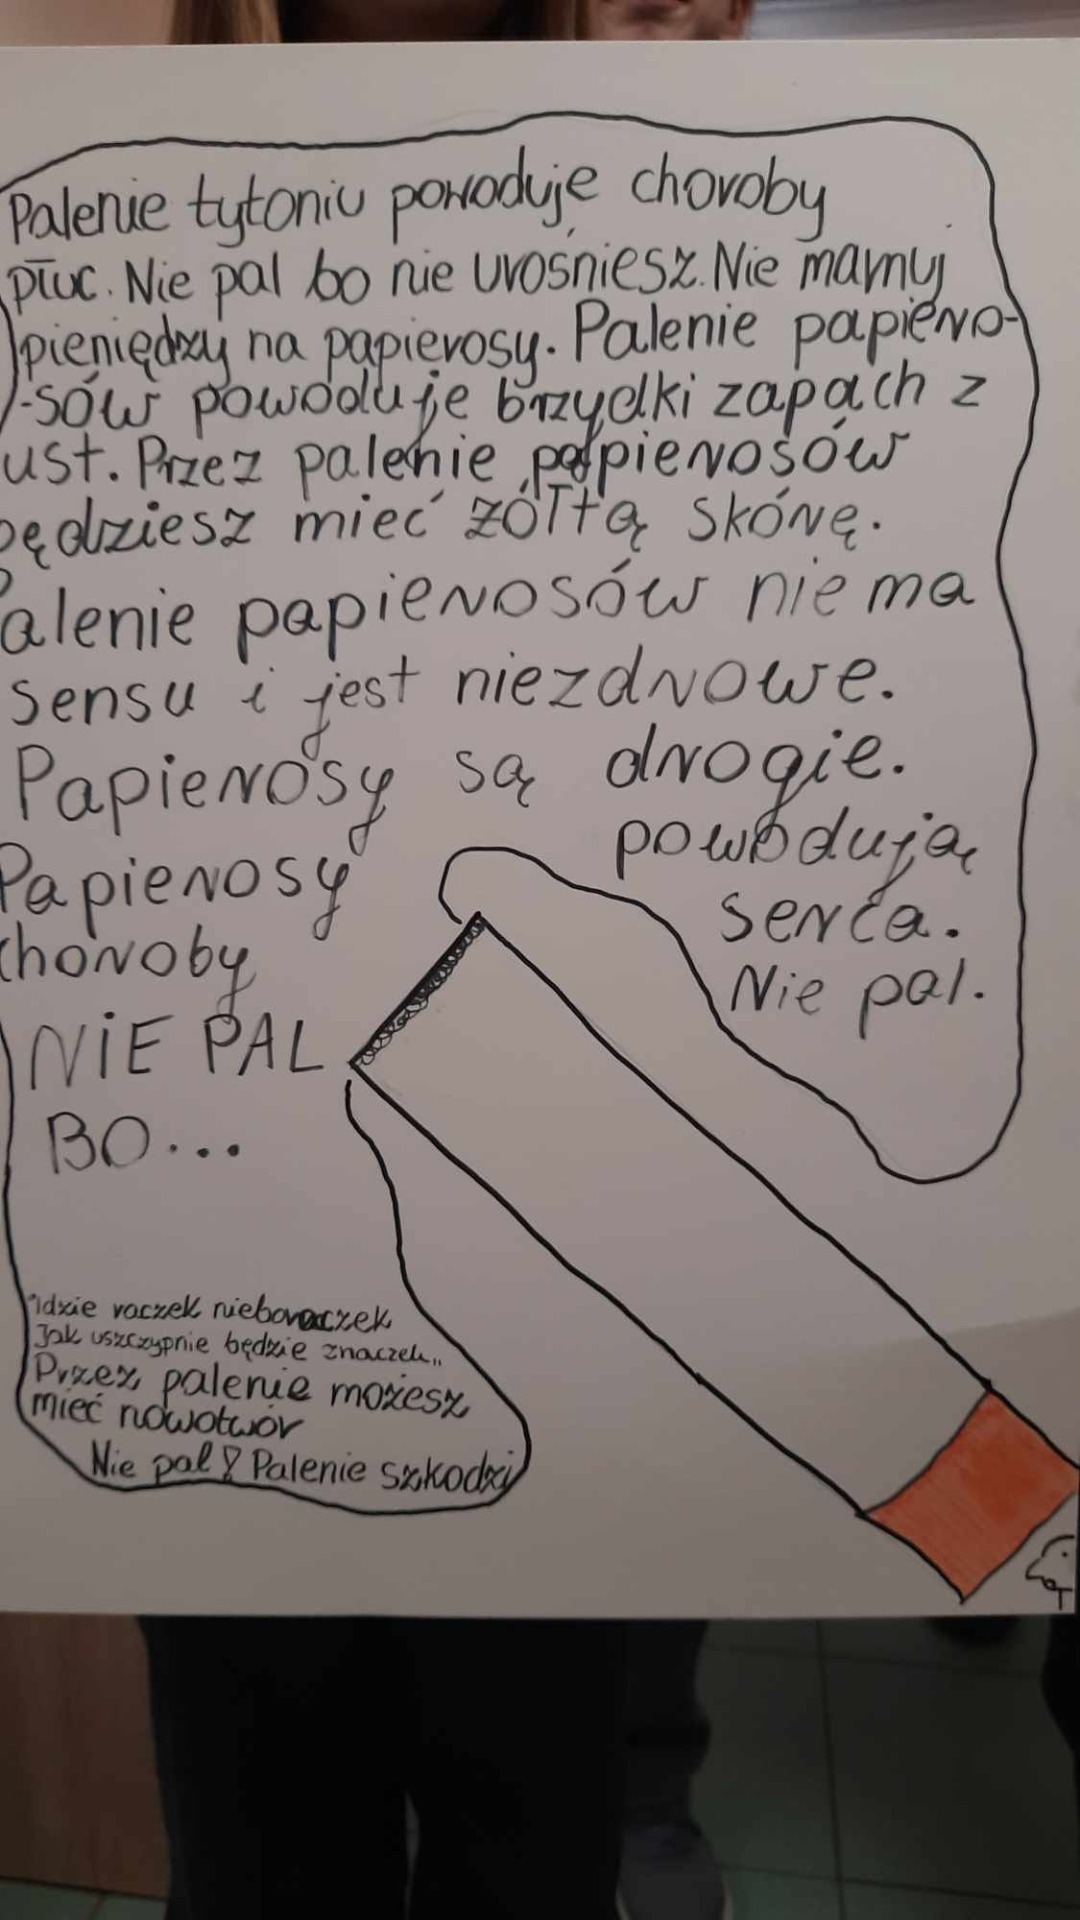 Palenie tytoniu powoduje choroby
płuc. Nie pal bo nie urośniesz. Nie mamy
pieniędzy na papierosy. Palenie papiero-
-sów powoduje brzydki zapach z
ust. Przez palenie papierosów
będziesz mieć żółtą skórę.
Palenie papierosów nie ma
sensu i jest niezdrowe.
Papierosy są drogie.
Papierosy powodują
choroby serca.
Nie pal.
NIE PAL
BO...
"Idzie raczek nieboraczek
Jak uszczypnie będzie znaczek"
Przez palenie możesz
mieć nowotwór
Nie pal! Palenie szkodzi